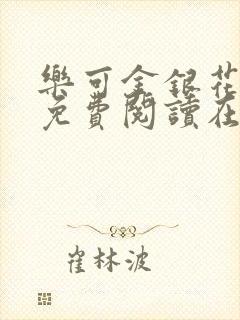 樂可金銀花
免費閱讀在
崔林波